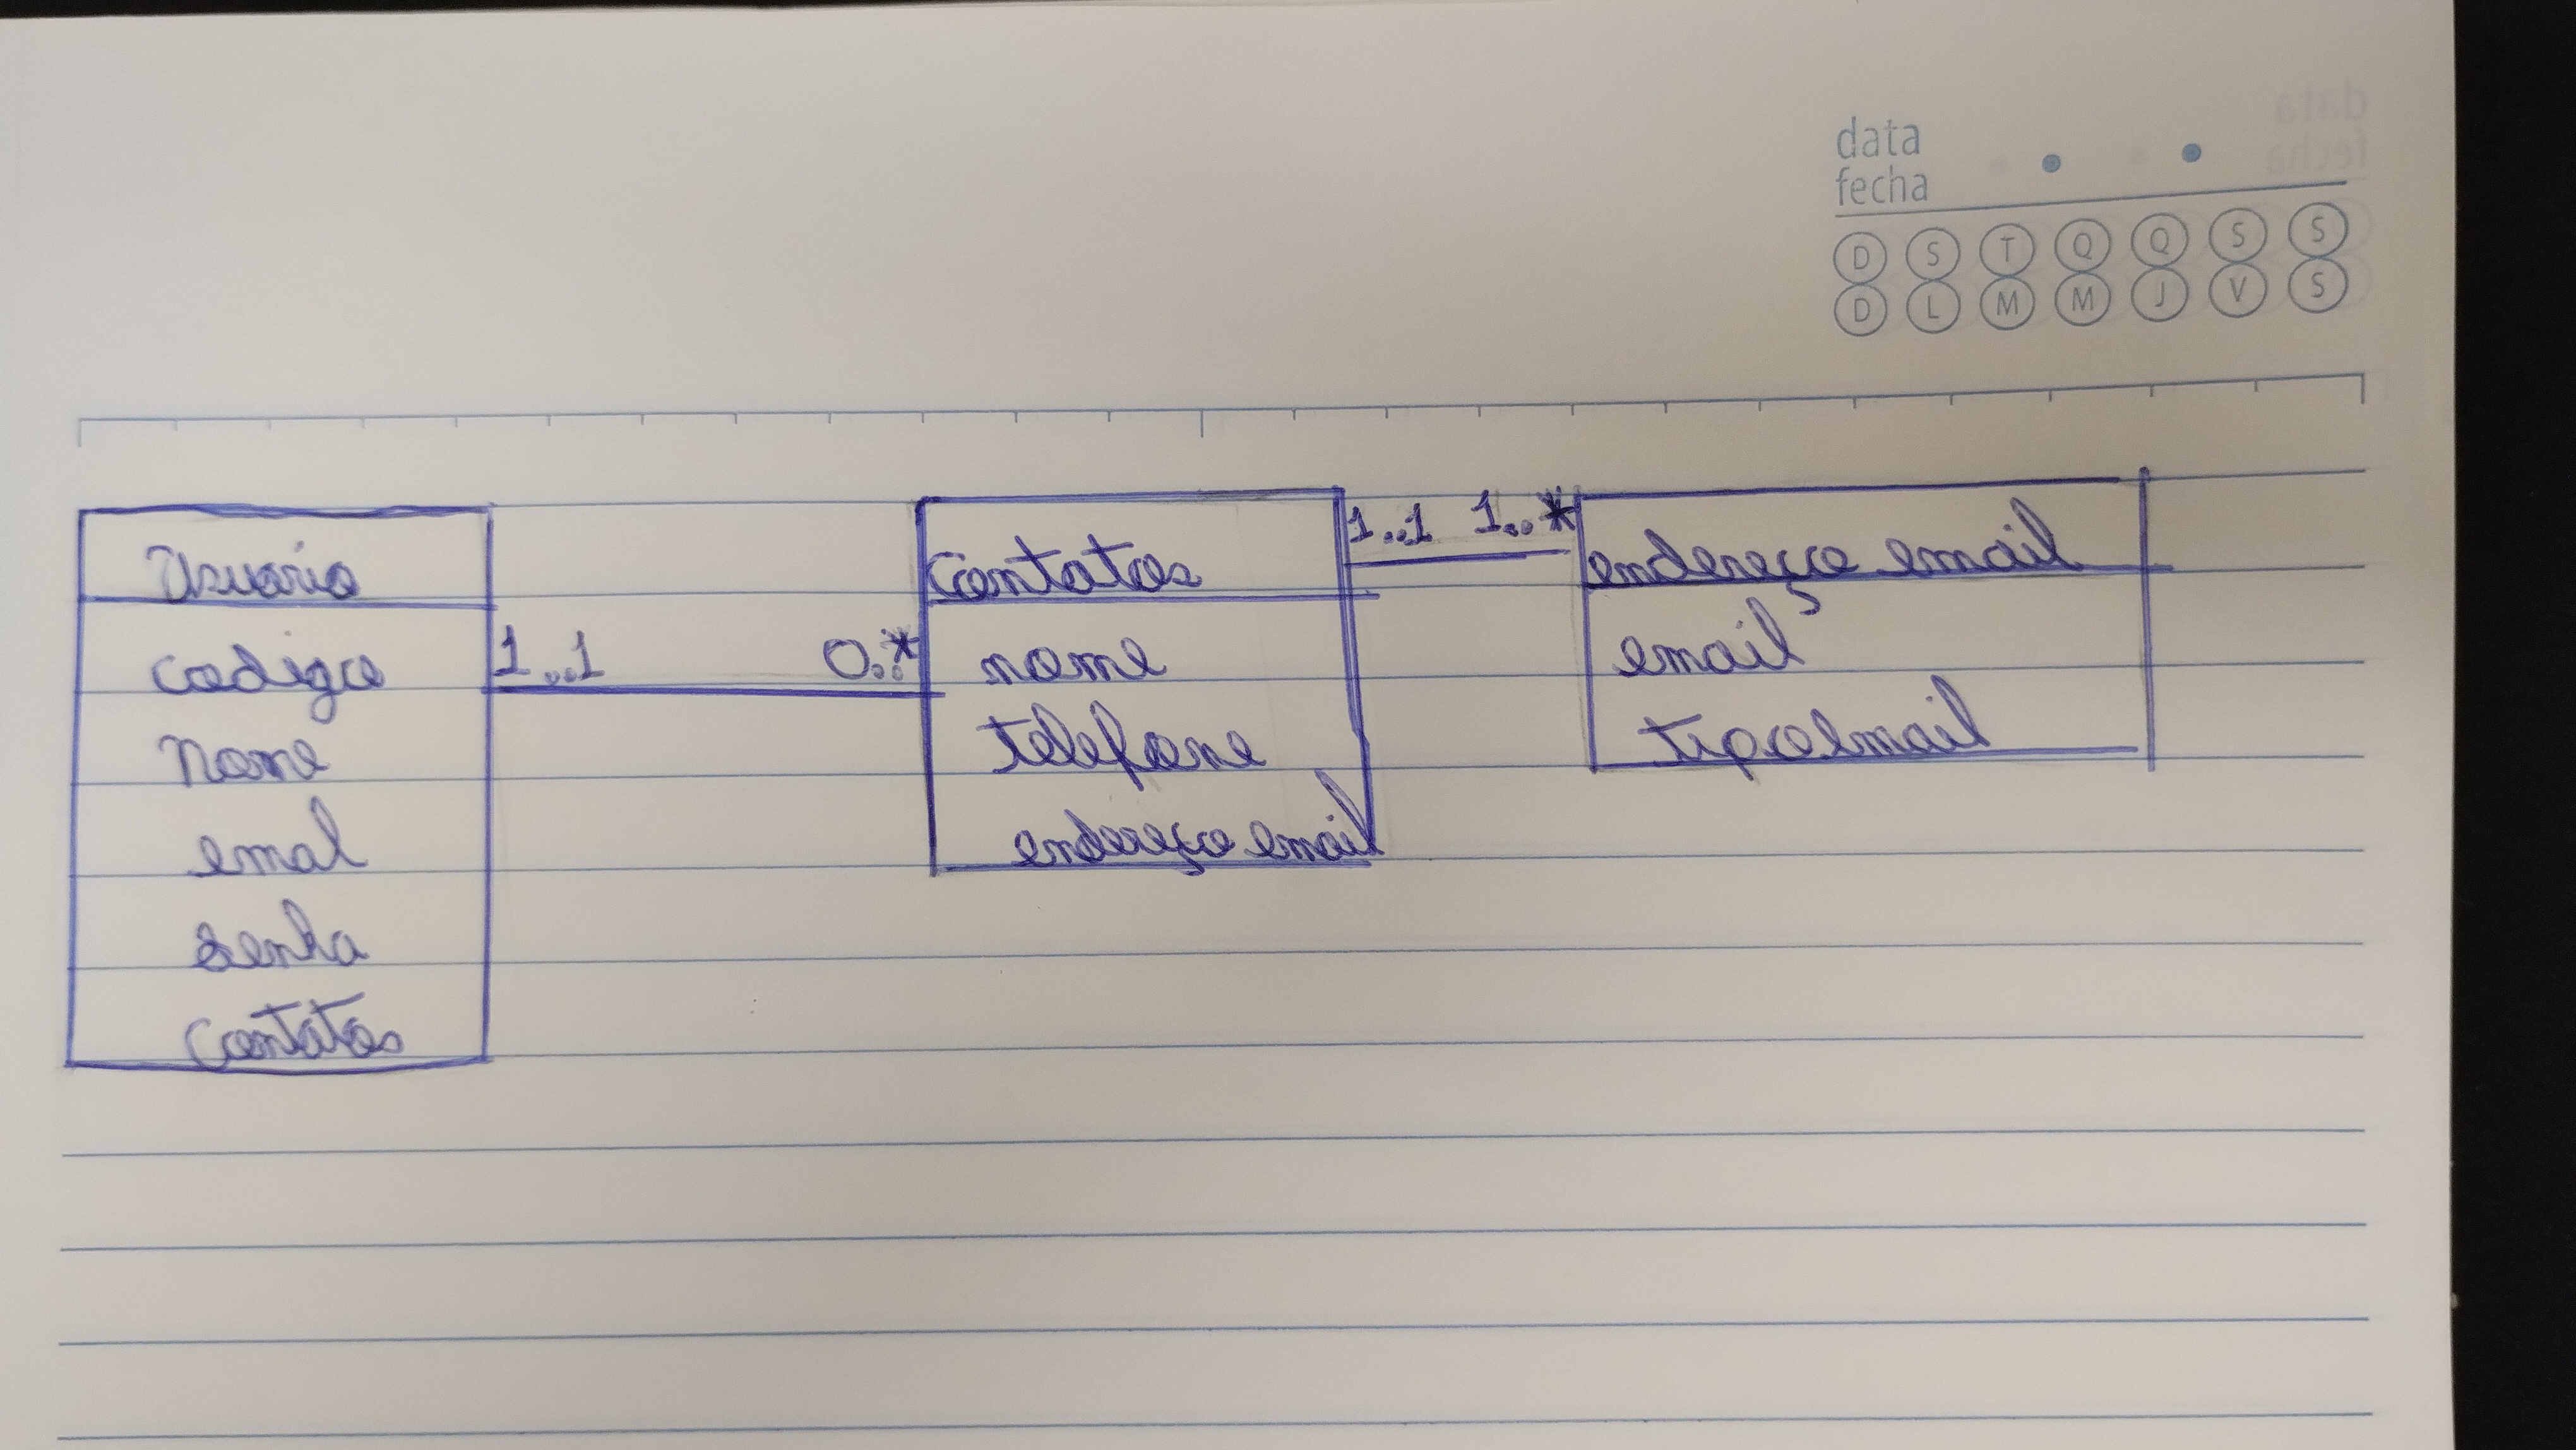 data
fecha
D S T Q Q S S
D L M M J V S
Usuario
codigo
Nome
emal
senha
Contatos
1..1 0..*
Contatos
nome
telefone
endereço email
1..1 1..*
endereço email
email
tipoemail